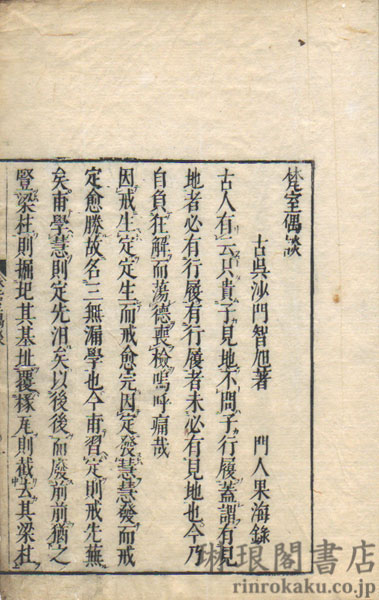 梵室偶談
古吳沙門智旭著 門人果海錄
古人有云只貴子見地不問子行履蓋謂有見
地者必有行履有行履者未必有見地也今乃
自負狂解而蕩德喪檢嗚呼痛哉
因戒生定定生而戒愈完因定發慧慧發而戒
定愈勝故名三無漏學也今甫習定則戒先蕪
矣甫學慧則定先汨矣以後後而廢前前猶之
豎梁柱則掘圯其基址覆椽尾則截去其梁柱
琳琅閣書店
rinrokaku.co.jp